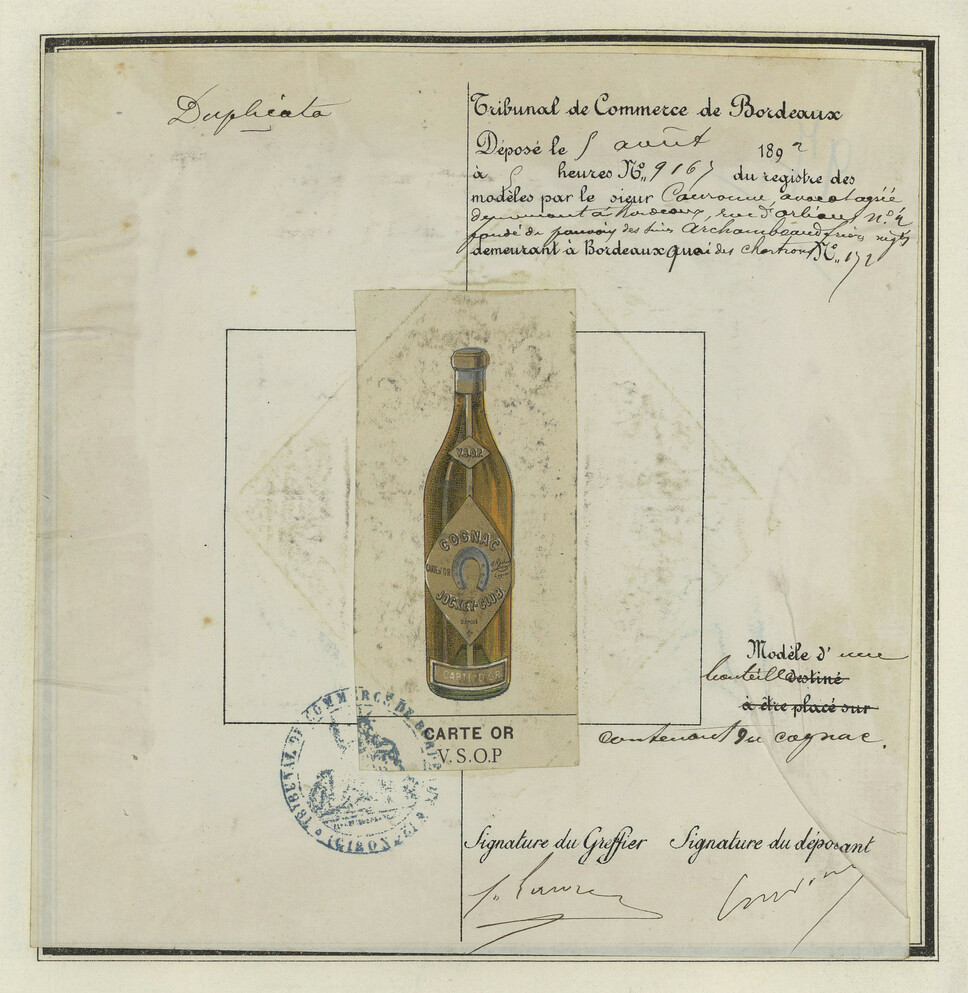 Duplicata
Tribunal de Commerce de Bordeaux
Déposé le 5 août 1892
à 5 heures No. 9167 du registre des
modèles par le sieur Couronne, avocat agréé
demeurant à Bordeaux, rue d'orléans no 4
fondé de pouvoir des sieurs Archambeaud frères négts
demeurant à Bordeaux quai des chartrons No. 172
V.S.O.P.
COGNAC
JOCKEY-CLUB
CARTE D'OR
CARTE OR
V.S.O.P
Modèle d'une
bouteille destiné
à être placé sur
contenant du cognac.
TRIBUNAL DE COMMERCE DE BORDEAUX
(GIRONDE)
Signature du Greffier Signature du déposant